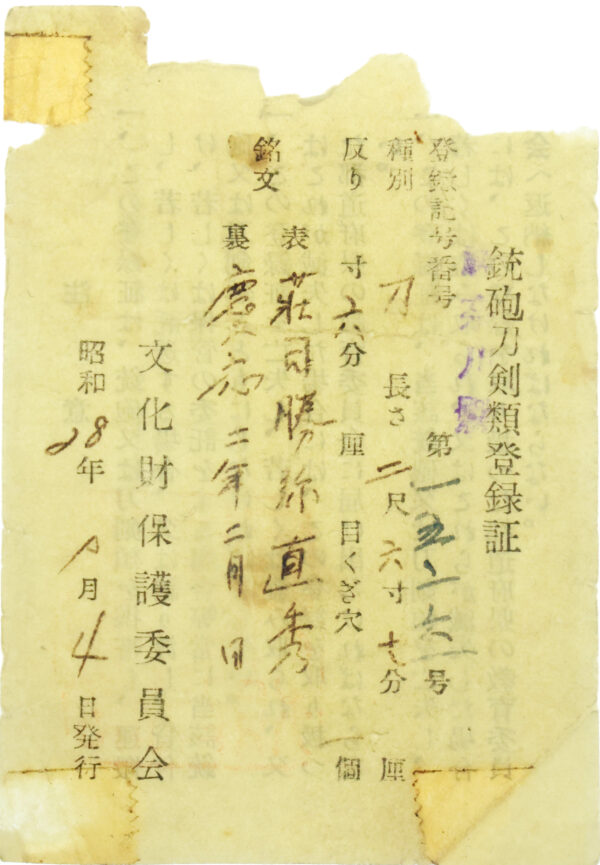 銃砲刀剣類登録証
登録記号番号 第一五二六一号
種別 刀 長さ 二尺六寸七分 厘
反り 寸六分 厘 目くぎ穴 一個
銘文 表 荘司勝弥直秀
裏 慶応二年二月日
文化財保護委員会
昭和28年 月4日発行